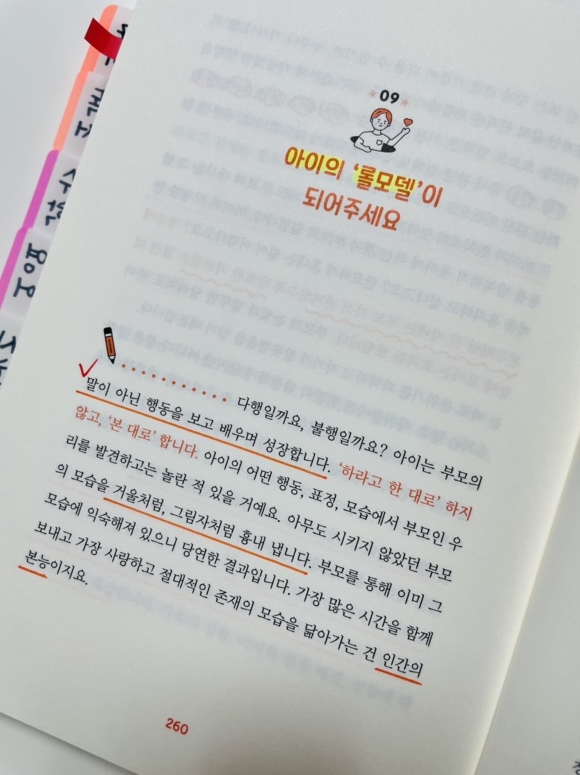 09
아이의 '롤모델'이
되어주세요
다행일까요, 불행일까요? 아이는 부모의
말이 아닌 행동을 보고 배우며 성장합니다. '하라고 한 대로' 하지
않고, '본 대로' 합니다. 아이의 어떤 행동, 표정, 모습에서 부모인 우
리를 발견하고는 놀란 적 있을 거예요. 아무도 시키지 않았던 부모
의 모습을 거울처럼, 그림자처럼 흉내 냅니다. 부모를 통해 이미 그
모습에 익숙해져 있으니 당연한 결과입니다. 가장 많은 시간을 함께
보내고 가장 사랑하고 절대적인 존재의 모습을 닮아가는 건 인간의
본능이지요.
260
수학